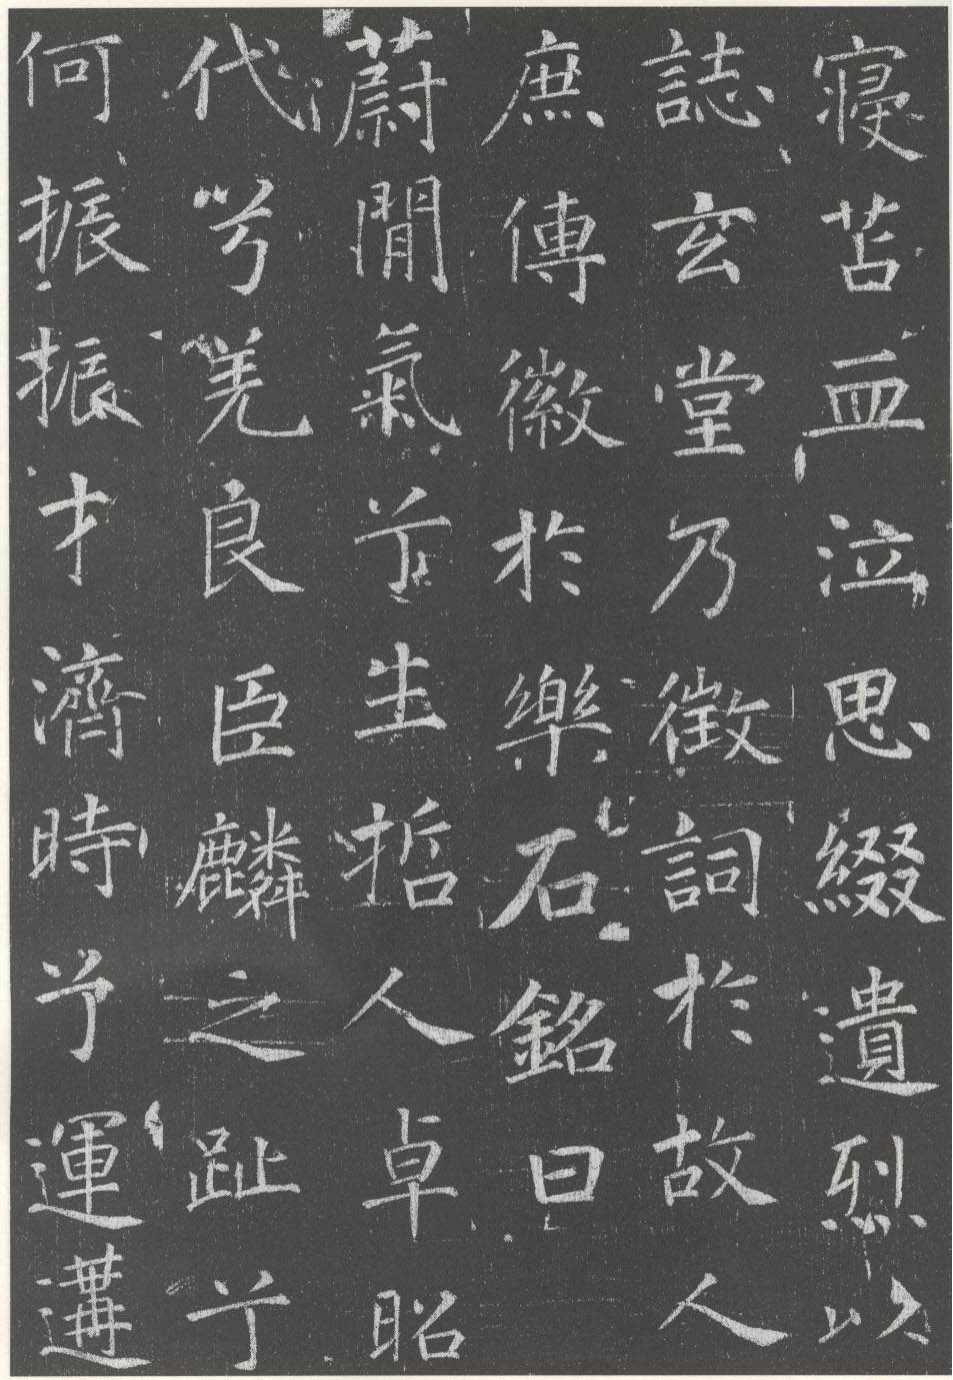 寝苫血泣思綴遺烈以
誌玄堂乃徵詞於故人
庶傳徽於樂石銘曰
蔚閒氣兮生哲人卓昭
代兮羌良臣麟之趾兮
何振振才濟時兮運遘